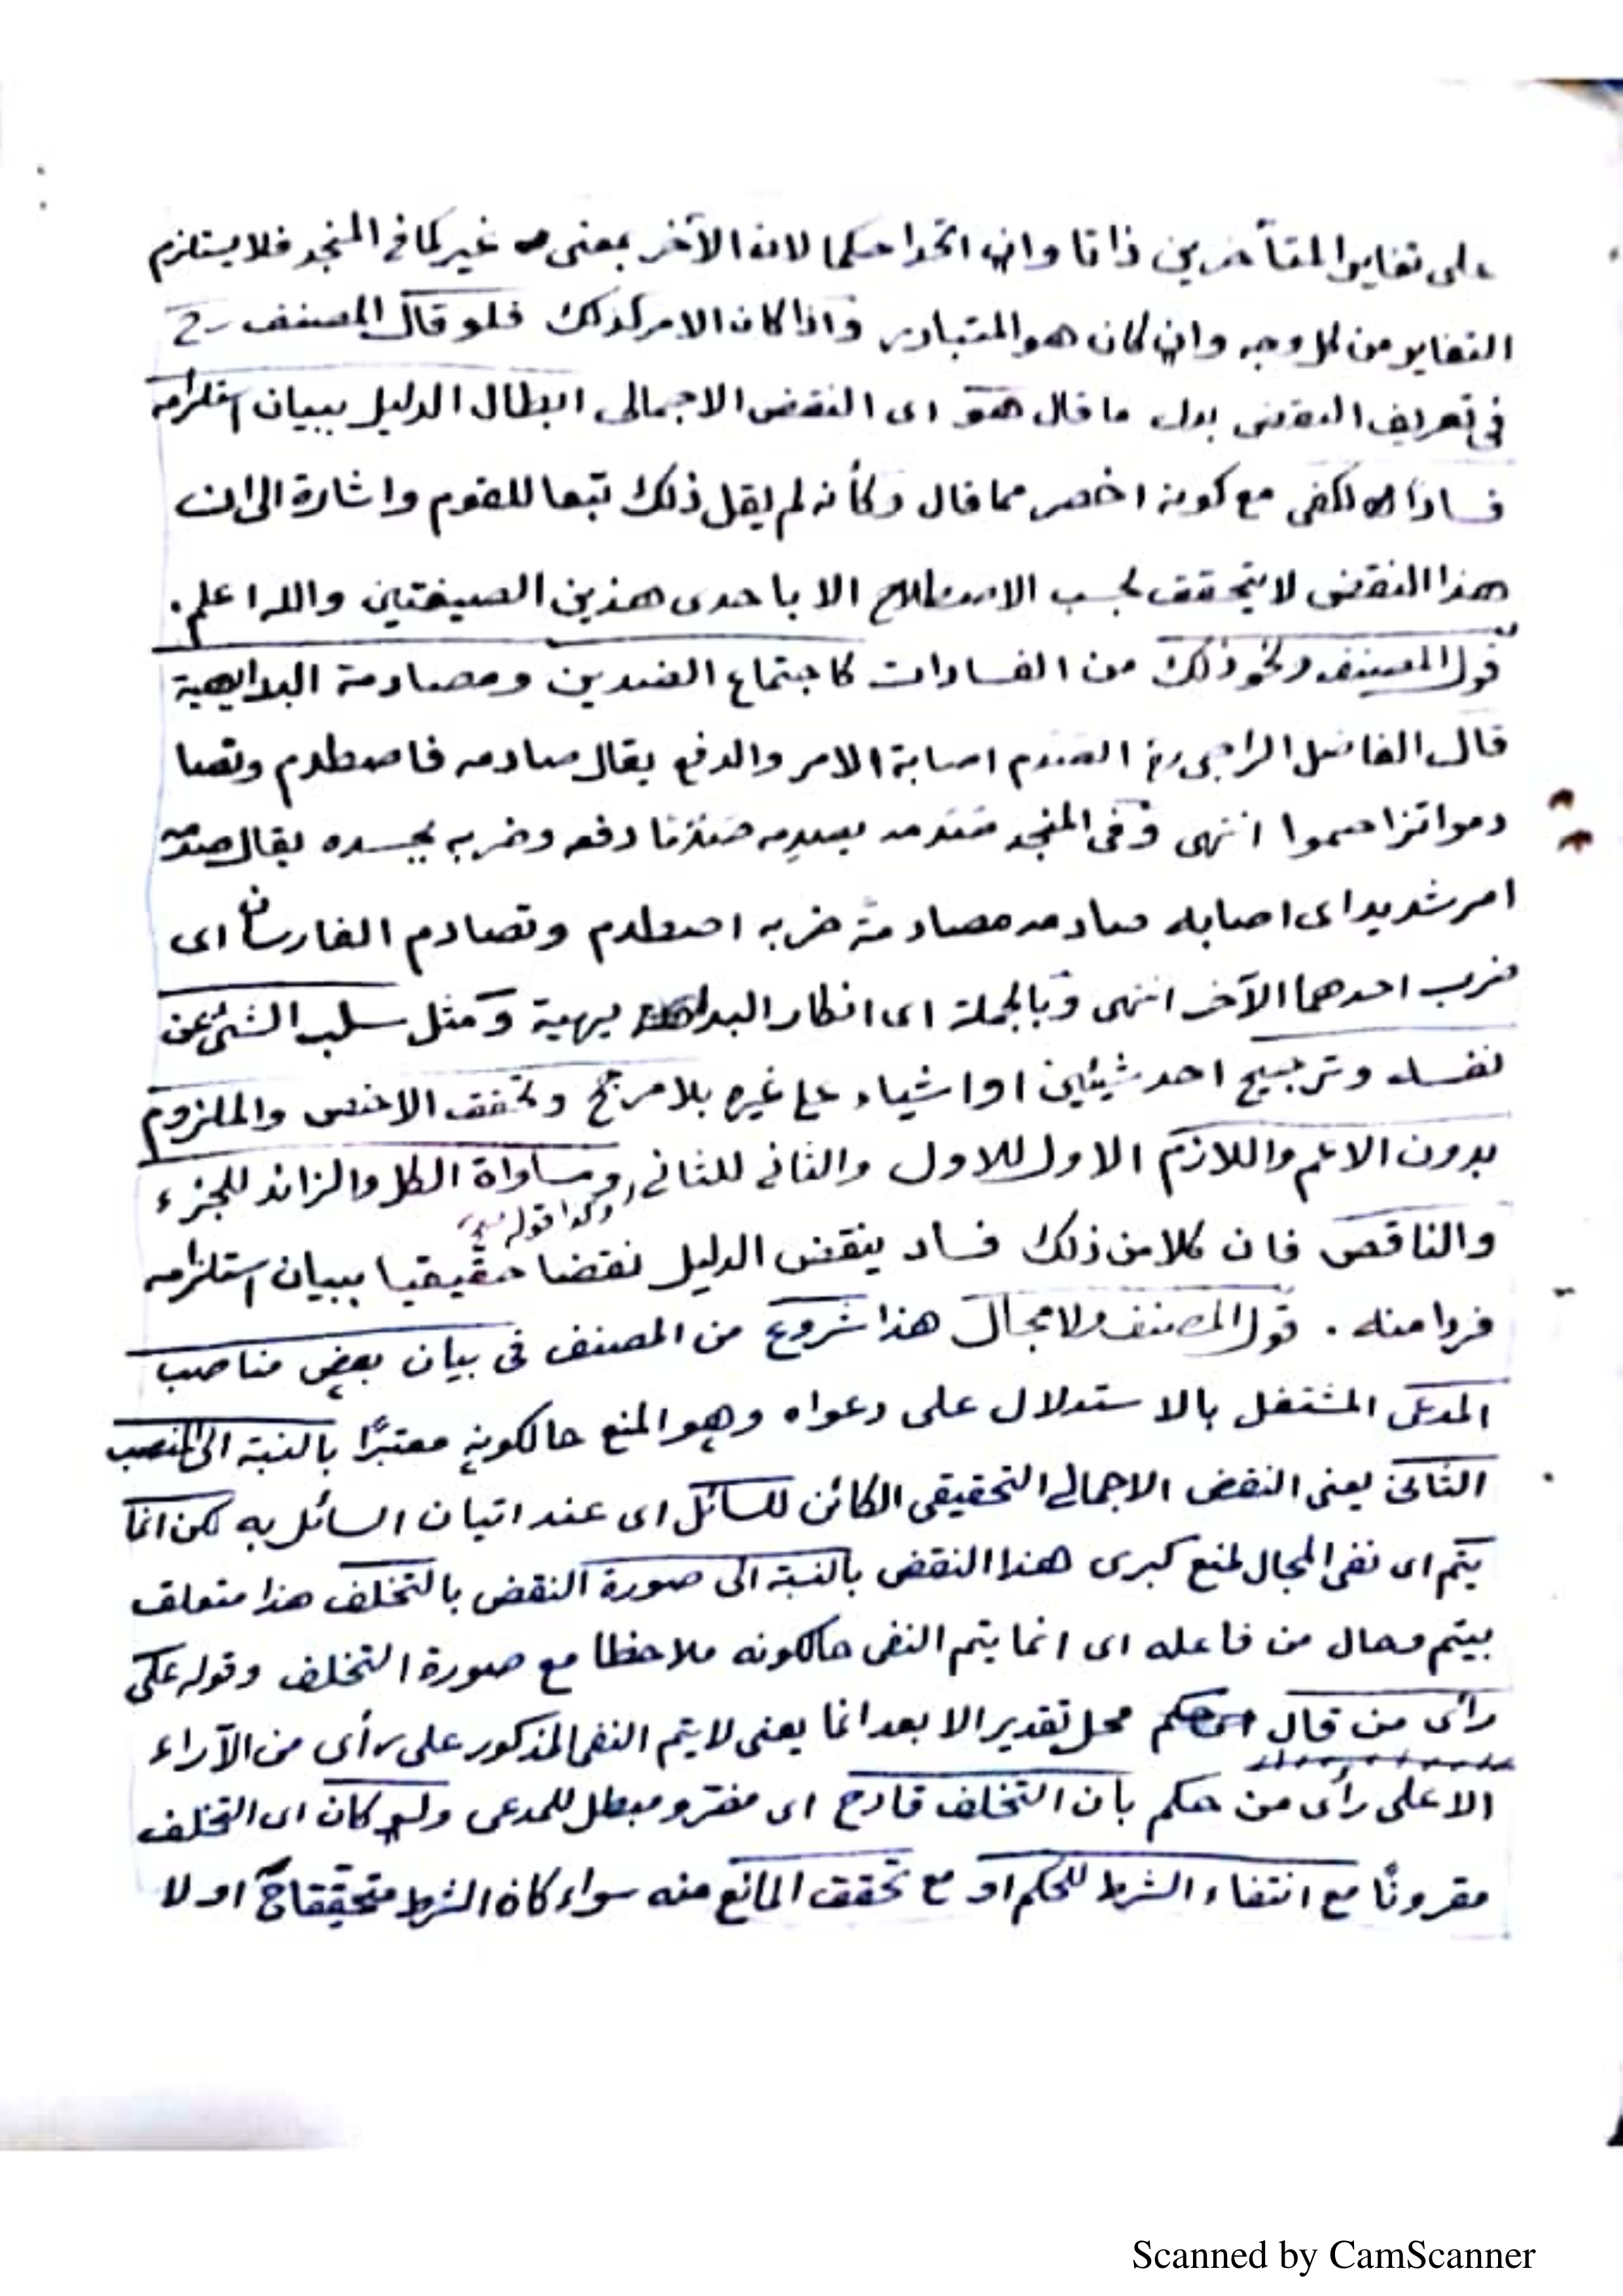 على تغاير المتأخرين ذاتا وان اتحدا حكما لان الآخر بمعنى غير كما في المنجد فلا يستلزم
التغاير من كل وجه وان كان هو المتبادر واذا كان الامر كذلك فلو قال المصنف رح
في تعريف النقض بدل ما قال هو اى النقض الاجمالى ابطال الدليل ببيان استلزامه
فسادا لكفى مع كونه اخصر مما قال وكأنه لم يقل ذلك تبعا للقوم واشارة الى ان
هذا النقض لا يتحقق بحسب الاصطلاح الا باحدى هذين الصيغتين والله اعلم.
قول المصنف ونحو ذلك من الفسادات كاجتماع الضدين ومصادمة البداهية
قال الفاضل الراجى الصدم اصابة الامر والدفع يقال صادمه فاصطدم وتصا
دموا تزاحموا انتهى وفى المنجد صدمه يصدمه صدما دفعه وضربه بجسده يقال صدمه
امر شديد اى اصابه صادمه مصادمة ضربه اصطدم وتصادم الفارسان اى
ضرب احدهما الآخر انتهى وبالجملة اى انكار البديهية ومثل سلب الشئ عن
نفسه وترجيح احد شيئين او اشياء على غيره بلا مرجح وتحقق الاخص والملزوم
بدون الاعم واللازم الاول للاول والثانى للثانى ومساواة الكل والزائد للجزء
وكذا قوله
والناقص فان كلا من ذلك فساد ينقض الدليل نقضا حقيقيا ببيان استلزامه
فردا منه . قول المصنف ولا مجال هذا شروع من المصنف فى بيان بعض مناصب
المدعى المشتغل بالاستدلال على دعواه وهو المنع حالكونه معتبرًا بالنسبة الى المنصب
الثانى يعنى النقض الاجمالى التحقيقى الكائن للسائل اى عند اتيان السائل به لكن انما
يتم اى نفى المجال لمنع كبرى هذا النقض بالنسبة الى صورة النقض بالتخلف هذا متعلق
بيتم وحال من فاعله اى انما يتم النفى حالكونه ملاحظا مع صورة التخلف وقوله على
رأى من قال محل تقدير الا بعد انما يعنى لا يتم النفى المذكور على رأى من الآراء
الا على رأى من حكم بان التخلف قادح اى مضر ومبطل للمدعى ولو كان اى التخلف
مقرونًا مع انتفاء الشرط للحكم او مع تحقق المانع منه سواء كان الشرط متحققا ح او لا
Scanned by CamScanner